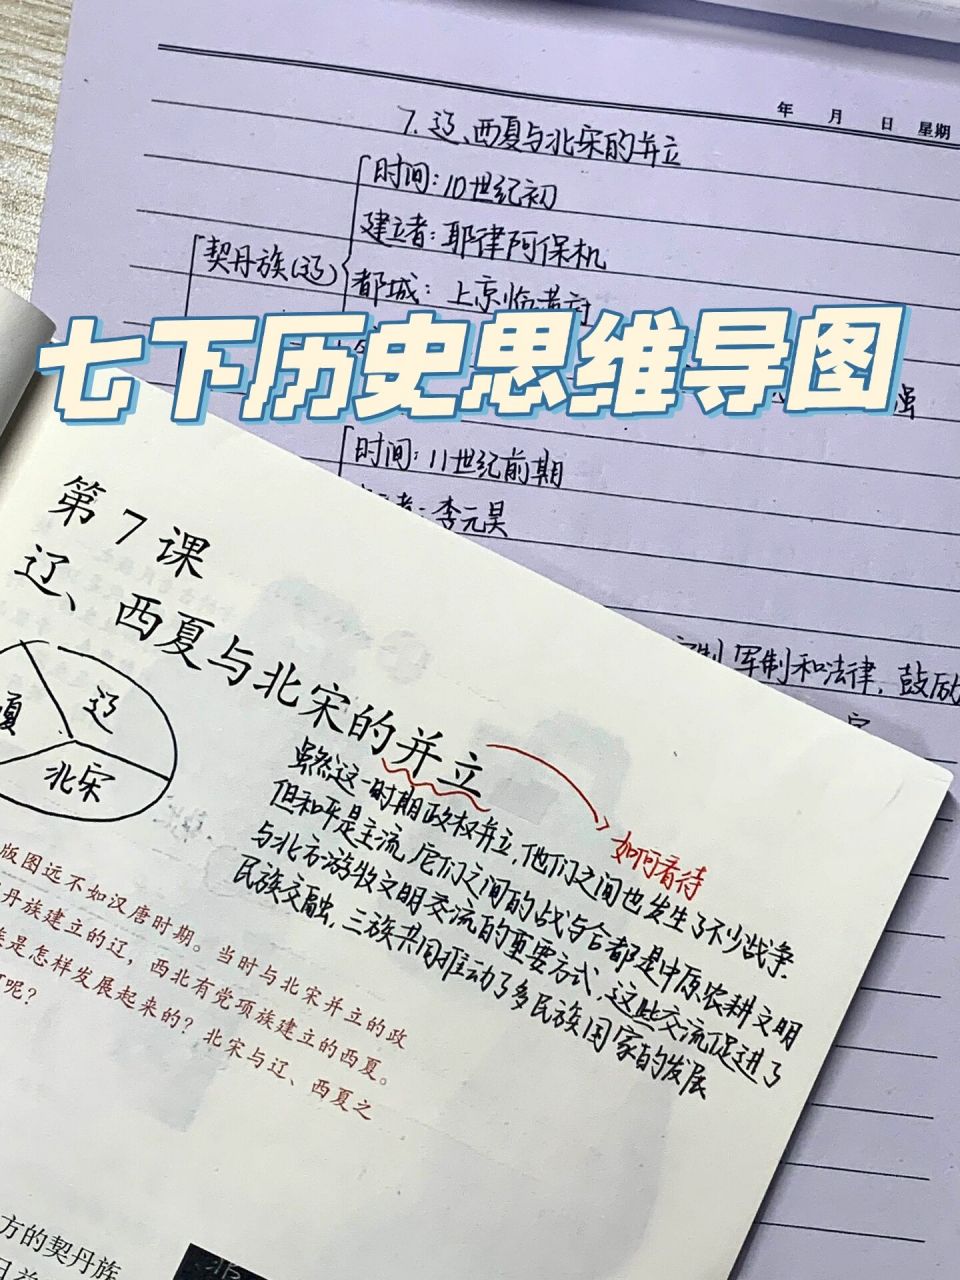 年 月 日 星期
7. 辽、西夏与北宋的并立
时间:10世纪初
建立者:耶律阿保机
契丹族(辽)
都城:上京临潢府
七下历史思维导图
强
时间:11世纪前期
者:李元昊
军制和法律,鼓励
第7课
辽、西夏与北宋的并立
辽
夏
北宋
如何看待
虽然这一时期政权并立,他们之间也发生了不少战争
但和平是主流,它们之间的战与合都是中原农耕文明
与北方游牧文明交流的重要方式,这些交流促进了
民族交融,三族共同推动了多民族国家的发展
版图远不如汉唐时期。当时与北宋并立的政
丹族建立的辽,西北有党项族建立的西夏。
族是怎样发展起来的?北宋与辽、西夏之
呢?
方的契丹族